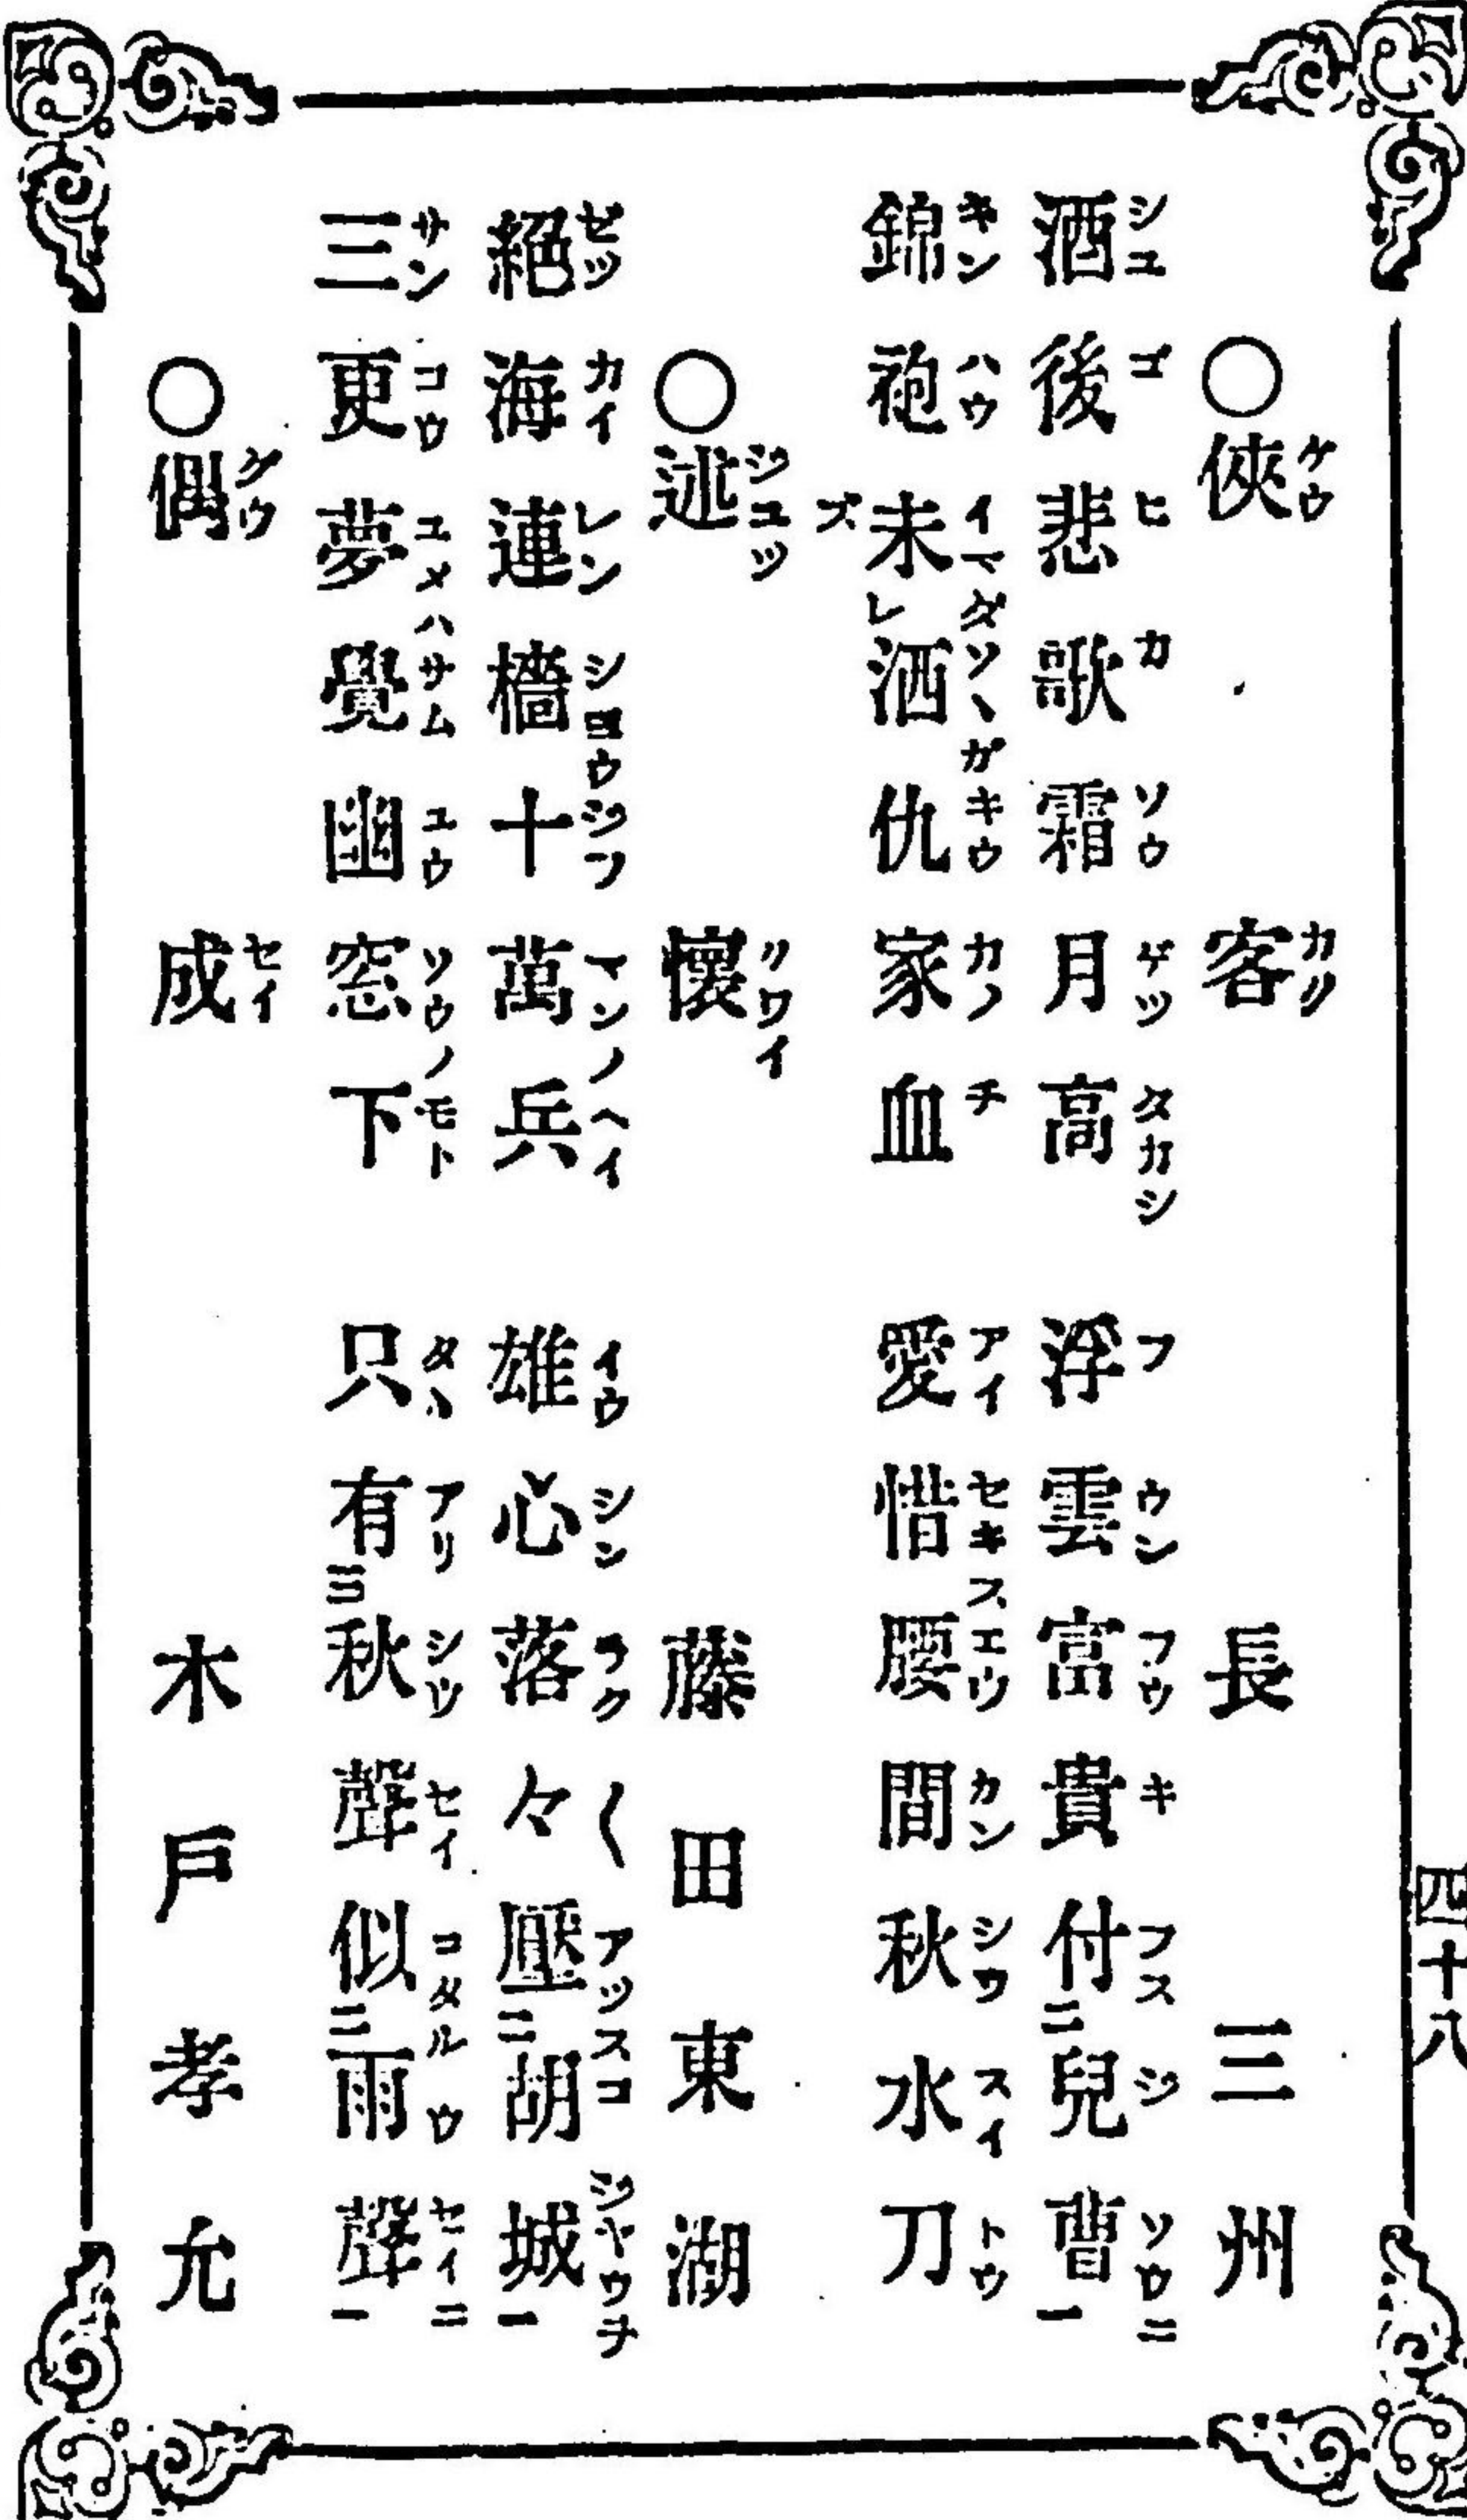 四十八
○俠客 長三州
酒後悲歌霜月高 浮雲富貴付二兒曹一
錦袍未レ洒仇家血 愛惜腰間秋水刀
○述懷 藤田東湖
絕海連檣十萬兵 雄心落々壓二胡城一
三更夢覺幽窓下 只有三秋聲似二雨聲一
○偶成 木戶孝允